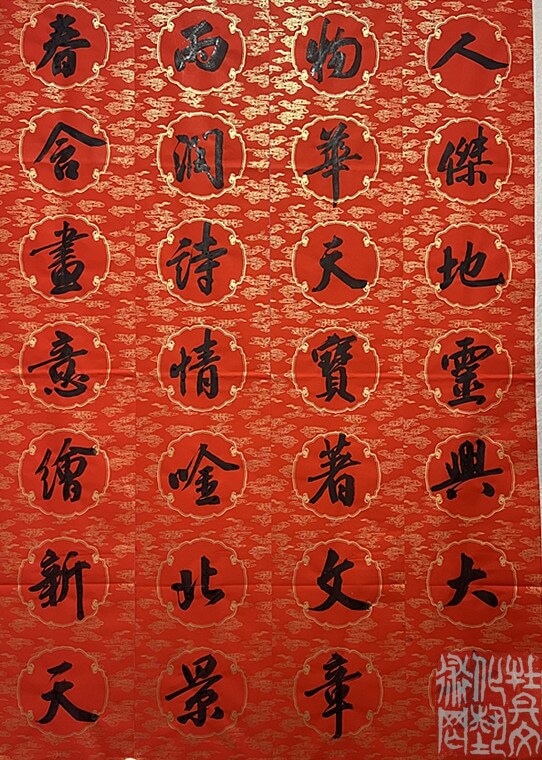 人傑地靈興大
物華天寶著文章
雨潤詩情唫北景
春含畫意繪新天